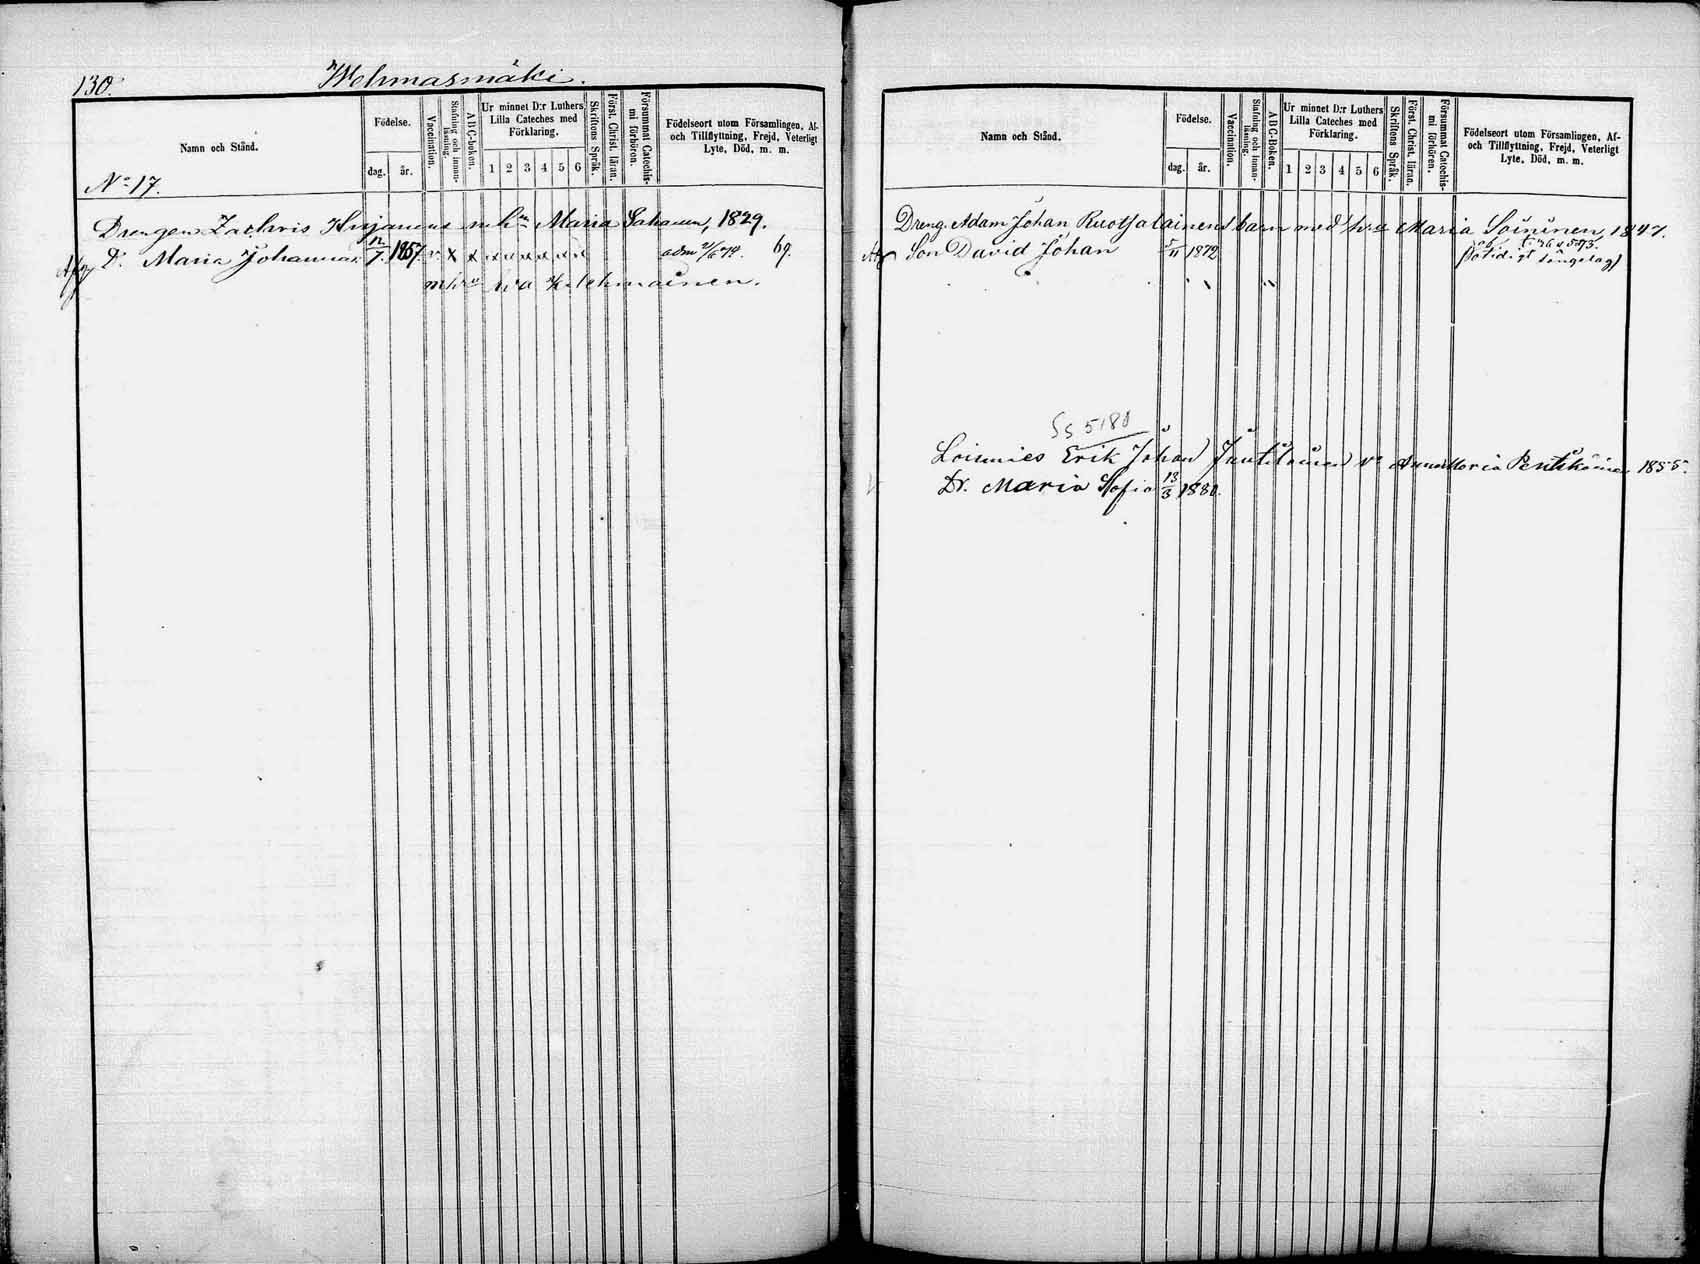 130.
Wehmasmäki.
Namn och Stånd.
Födelse.
dag.
år.
Vaccination.
Stafning och innanläsning.
ABC-boken.
Ur minnet D:r Luthers Lilla Cateches med Förklaring.
1 2 3 4 5 6
Skriftens Språk.
Först. Christ. läran.
Försummat Catechismi förhören.
Födelseort utom Församlingen, Af- och Tillflyttning, Frejd, Veterligt Lyte, Död, m. m.
No 17.
Drengen Zachris m hu Maria 1829.
D. Maria Johanna 12/7 1857 v x x x x x x x x adm 69.
Namn och Stånd.
Födelse.
dag.
år.
Vaccination.
Stafning och innanläsning.
ABC-Boken.
Ur minnet D:r Luthers Lilla Cateches med Förklaring.
1 2 3 4 5 6
Skriftens Språk.
Först. Christ. läran.
Försummat Catechismi förhören.
Födelseort utom Församlingen, Af- och Tillflyttning, Frejd, Veterligt Lyte, Död, m. m.
Dreng. Adam Johan Ruotsalainens barn med hu Maria Soininen, 1847.
Son David Johan 5/11 1872
Ss 5180
Loismies Erik Johan Jantilainen Anna Maria Pentikäinen 1855.
Dr. Maria Sofia 13/3 1880.